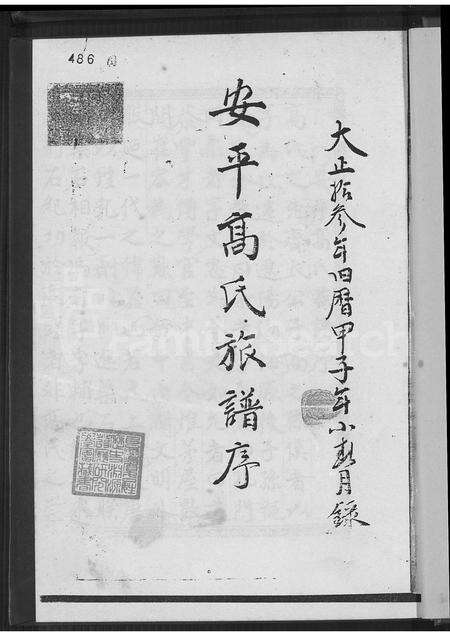 486
大正拾參年旧曆甲子年小春月錄
安平髙氏旅譜序
FamilySearch